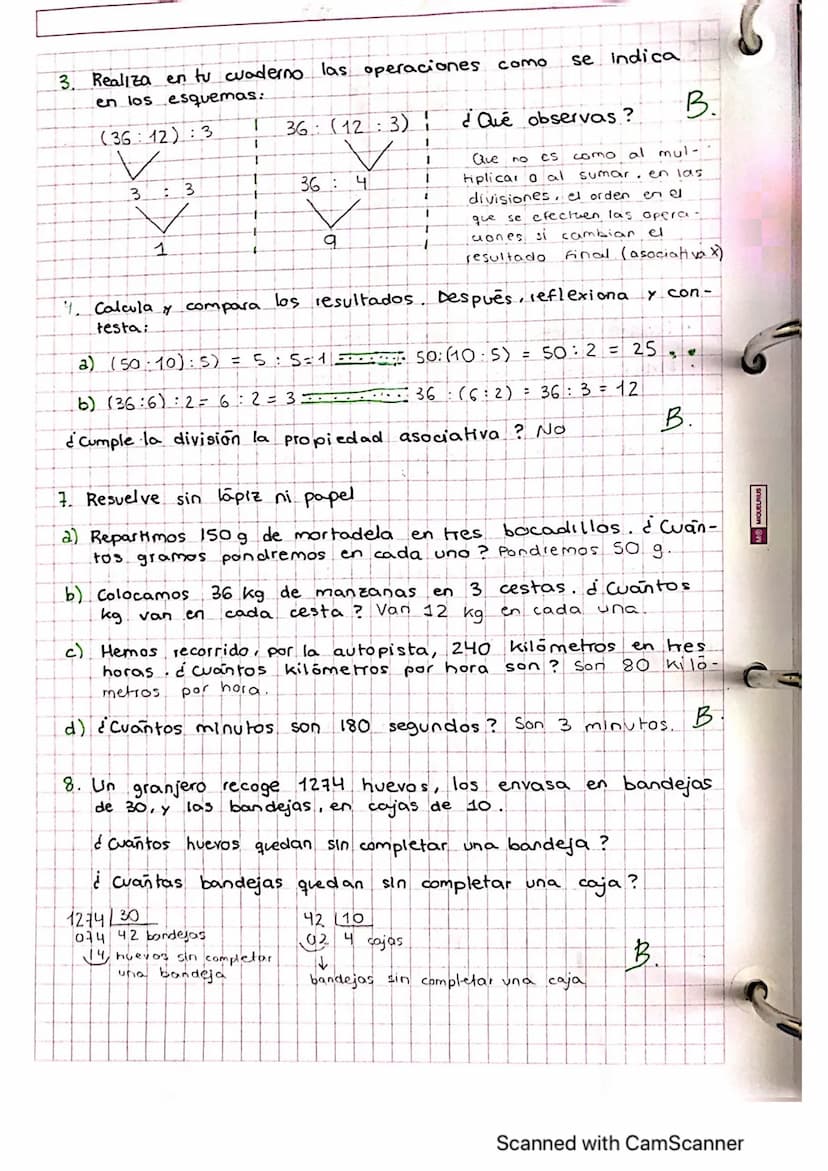 3. Realiza en tu cuaderno las operaciones como se indica
en los esquemas:
(36 : 12) : 3
3 : 3
1
36 : (12 : 3)
36 : 4
9
¿Qué observas? B.
Que no es como al mul-
tiplicar o al sumar, en las
divisiones, el orden en el
que se efectuen las opera-
ciones si cambian el
resultado final (asociativa X)
4. Calcula y compara los resultados. Después, reflexiona y con-
testa:
a) (50 : 10) : 5) = 5 : 5 = 1 50:(10 : 5) = 50 : 2 = 25
b) (36:6) : 2 = 6 : 2 = 3 36 : (6 : 2) = 36 : 3 = 12
¿Cumple la división la propiedad asociativa? No B.
7. Resuelve sin lápiz ni papel
a) Repartimos 150 g de mortadela en tres bocadillos. ¿Cuán-
tos gramos pondremos en cada uno? Pondremos 50 g.
b) Colocamos 36 kg de manzanas en 3 cestas. ¿Cuántos
kg van en cada cesta? Van 12 kg en cada una.
c) Hemos recorrido, por la autopista, 240 kilómetros en tres
horas. ¿Cuántos kilómetros por hora son? Son 80 kiló-
metros por hora.
d) ¿Cuántos minutos son 180 segundos? Son 3 minutos. B.
8. Un granjero recoge 1274 huevos, los envasa en bandejas
de 30, y las bandejas, en cajas de 10.
¿Cuántos huevos quedan sin completar una bandeja?
¿Cuántas bandejas quedan sin completar una caja?
1274 | 30
074 42 bandejas
14 huevos sin completar
una bandeja
42 | 10
02 4 cajas
bandejas sin completar una caja
B.
MIQUELRIUS
Scanned with CamScanner